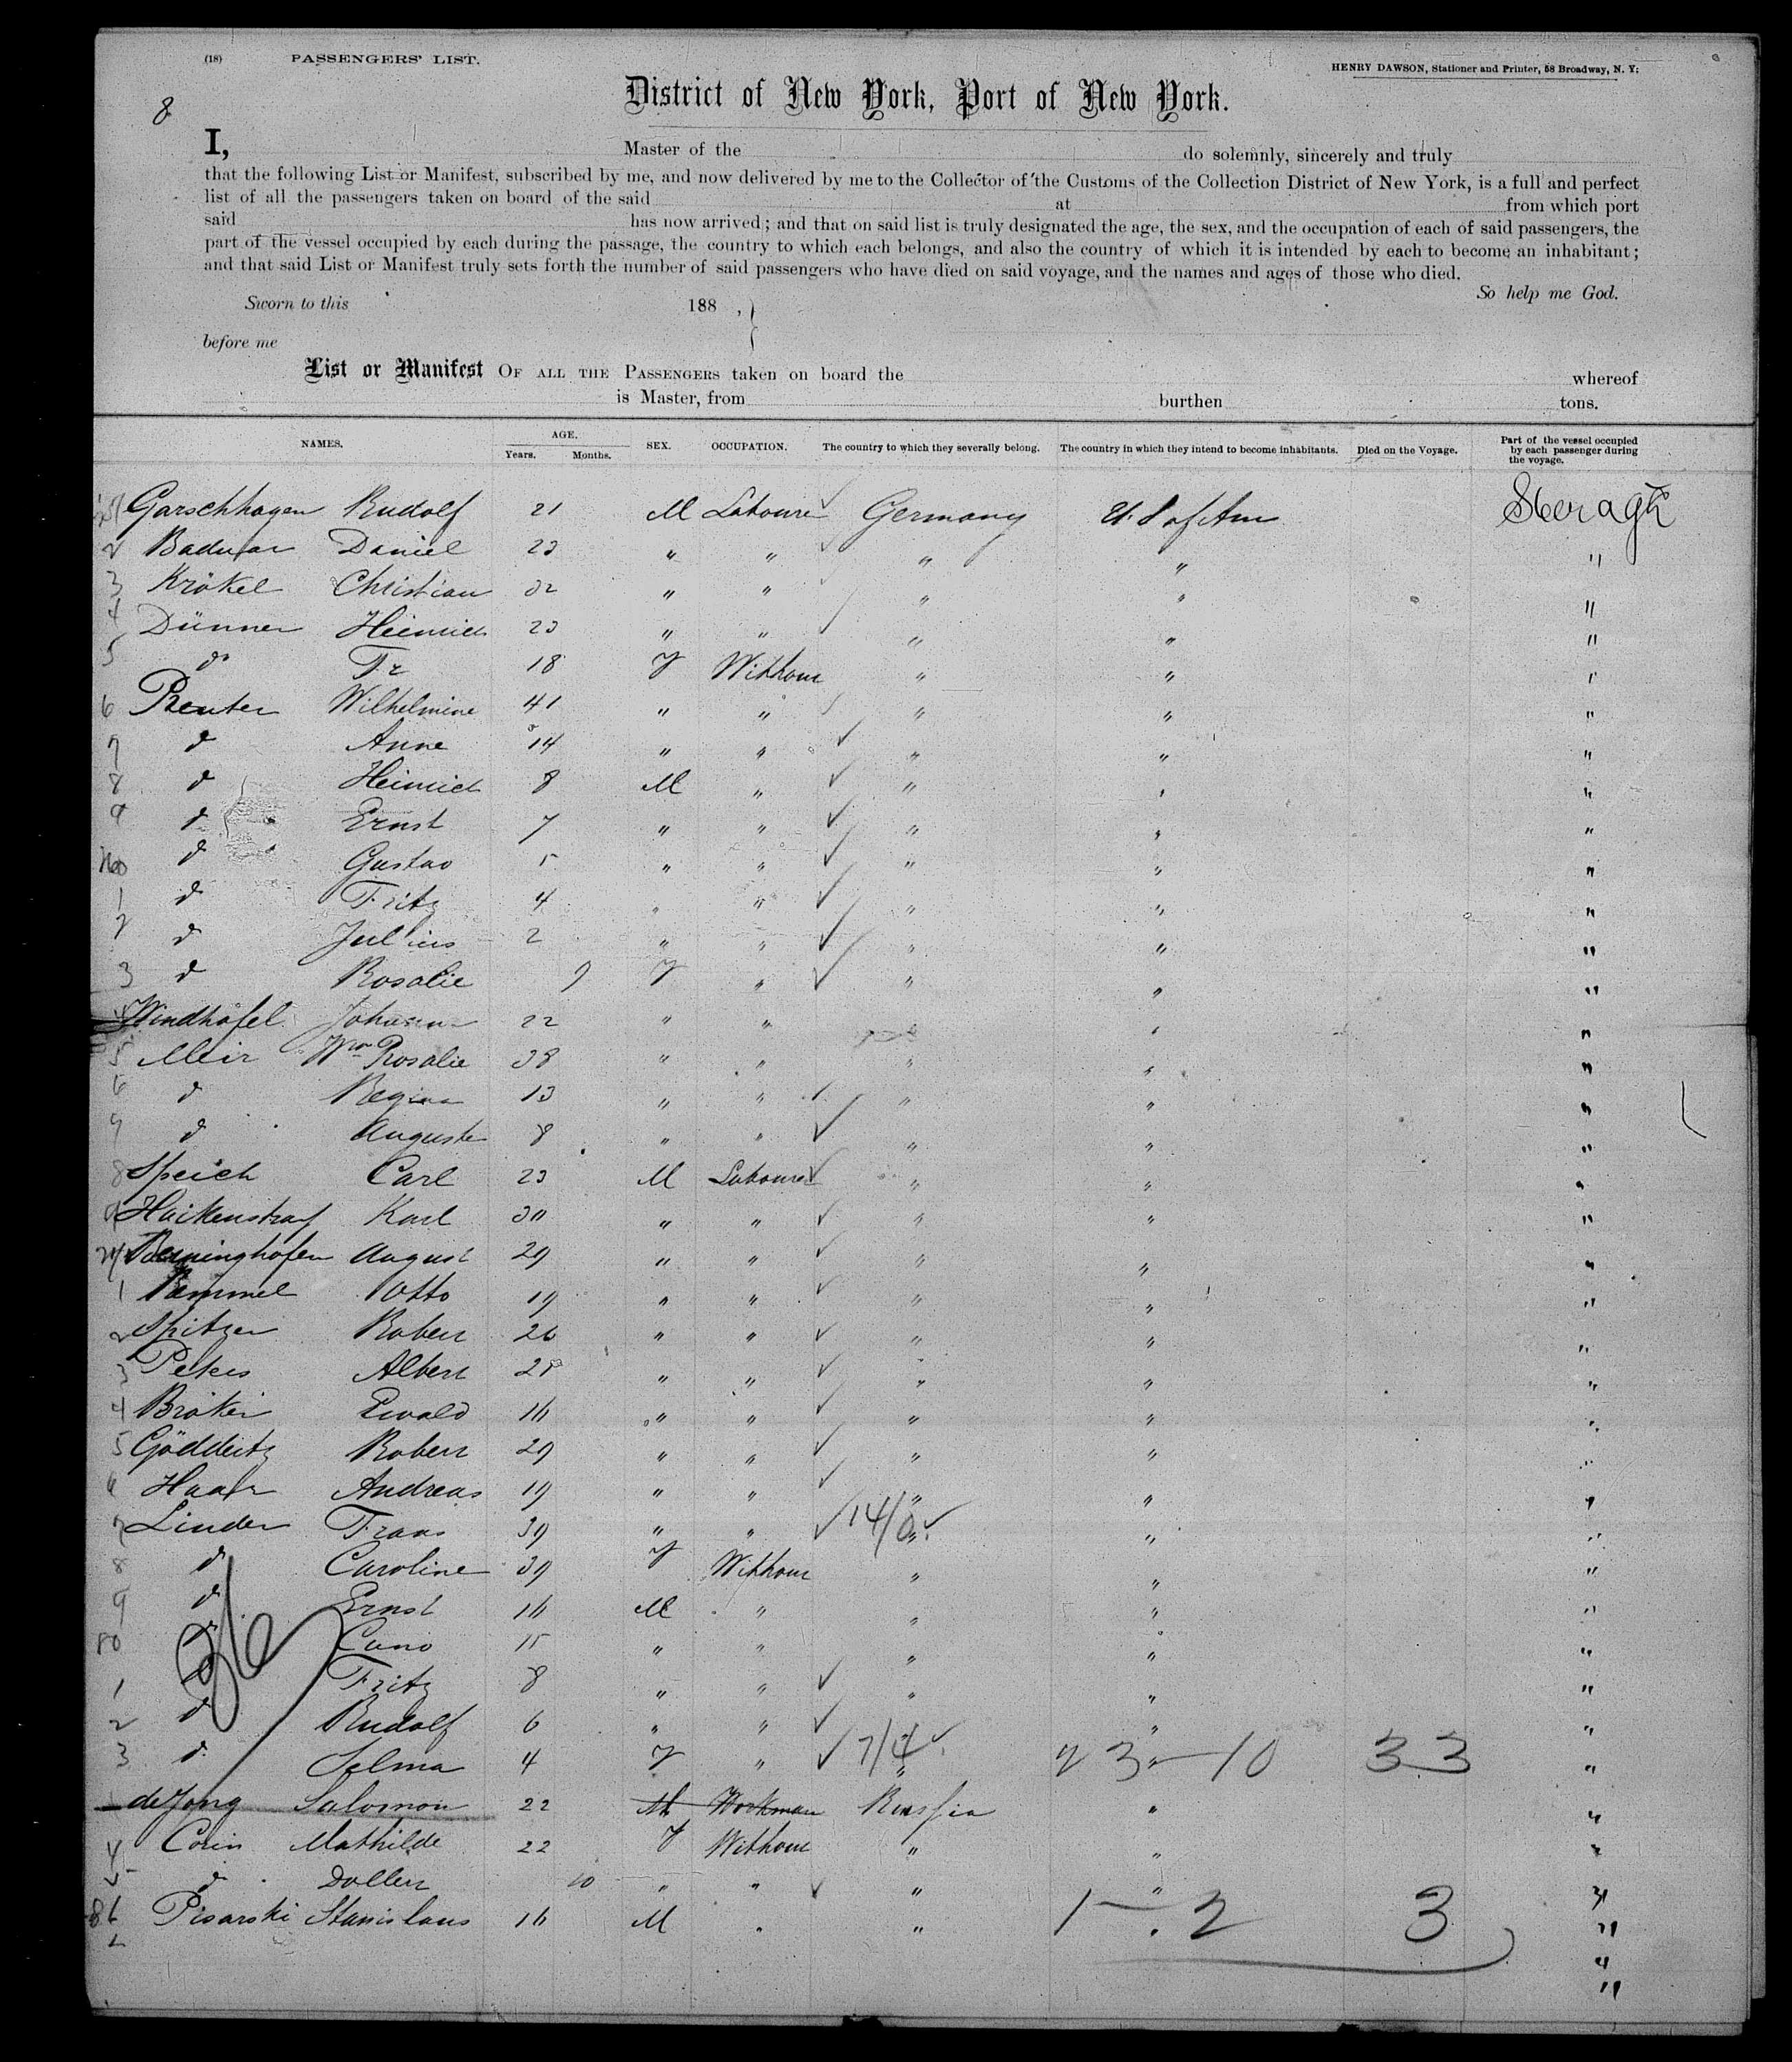 (18) PASSENGERS' LIST.
HENRY DAWSON, Stationer and Printer, 58 Broadway, N. Y.
8
District of New York, Port of New York.
I, Master of the do solemnly, sincerely and truly
that the following List or Manifest, subscribed by me, and now delivered by me to the Collector of the Customs of the Collection District of New York, is a full and perfect
list of all the passengers taken on board of the said at from which port
said has now arrived; and that on said list is truly designated the age, the sex, and the occupation of each of said passengers, the
part of the vessel occupied by each during the passage, the country to which each belongs, and also the country of which it is intended by each to become an inhabitant;
and that said List or Manifest truly sets forth the number of said passengers who have died on said voyage, and the names and ages of those who died.
So help me God.
Sworn to this 188 ,
before me
List or Manifest OF ALL THE PASSENGERS taken on board the whereof
is Master, from burthen tons.
NAMES. AGE. Years. Months. SEX. OCCUPATION. The country to which they severally belong. The country in which they intend to become inhabitants. Died on the Voyage. Part of the vessel occupied by each passenger during the voyage.
Garschhagen Rudolf 21 M Laboure Germany U.S of Am
2 Daniel 23 " " " " "
3 Krökel Christian 32 " " " " "
4 Dünner Heinrich 23 " " " " "
5 do Fr 18 F Without " " "
6 Reuter Wilhelmine 41 " " " " "
7 d Anne 14 " " " " "
8 d Heinrich 8 M " " " "
9 d Ernst 7 " " " " "
d Gustav 5 " " " " "
1 d Fritz 4 " " " " "
2 d Julius 2 " " " " "
3 d Rosalie 9 F " " " "
Windhöfel Johann 22 " " " "
5 Meir Wwe Rosalie 38 " " " " "
6 d Regina 13 " " " " "
7 d Auguste 8 " " " " "
8 Speich Carl 23 M Laboure " " "
9 Karl 30 " " " " "
Benninghofen August 29 " " " " "
1 Otto 19 " " " " "
2 Spitzer Robert 26 " " " " "
3 Peters Albert 28 " " " " "
4 Bröker Ewald 16 " " " " "
5 Robert 29 " " " " "
6 Andreas 19 " " " " "
7 Linder Frans 39 " " 14/0 " " "
8 d Caroline 39 F Without " " "
9 d Ernst 16 M " " " "
80 d Cuno 15 " " " " "
1 d Fritz 8 " " " " "
2 d Rudolf 6 " " " " "
3 d Selma 4 F " 7/4 " 23 - 10 33 "
de Jong Salomon 22 M Workman Russia " "
4 Corin Mathilde 22 F Without " " "
5 d 10 " " " " "
86 Pisarski Stanislaus 16 M " " 1 - 2 3 "
"
"